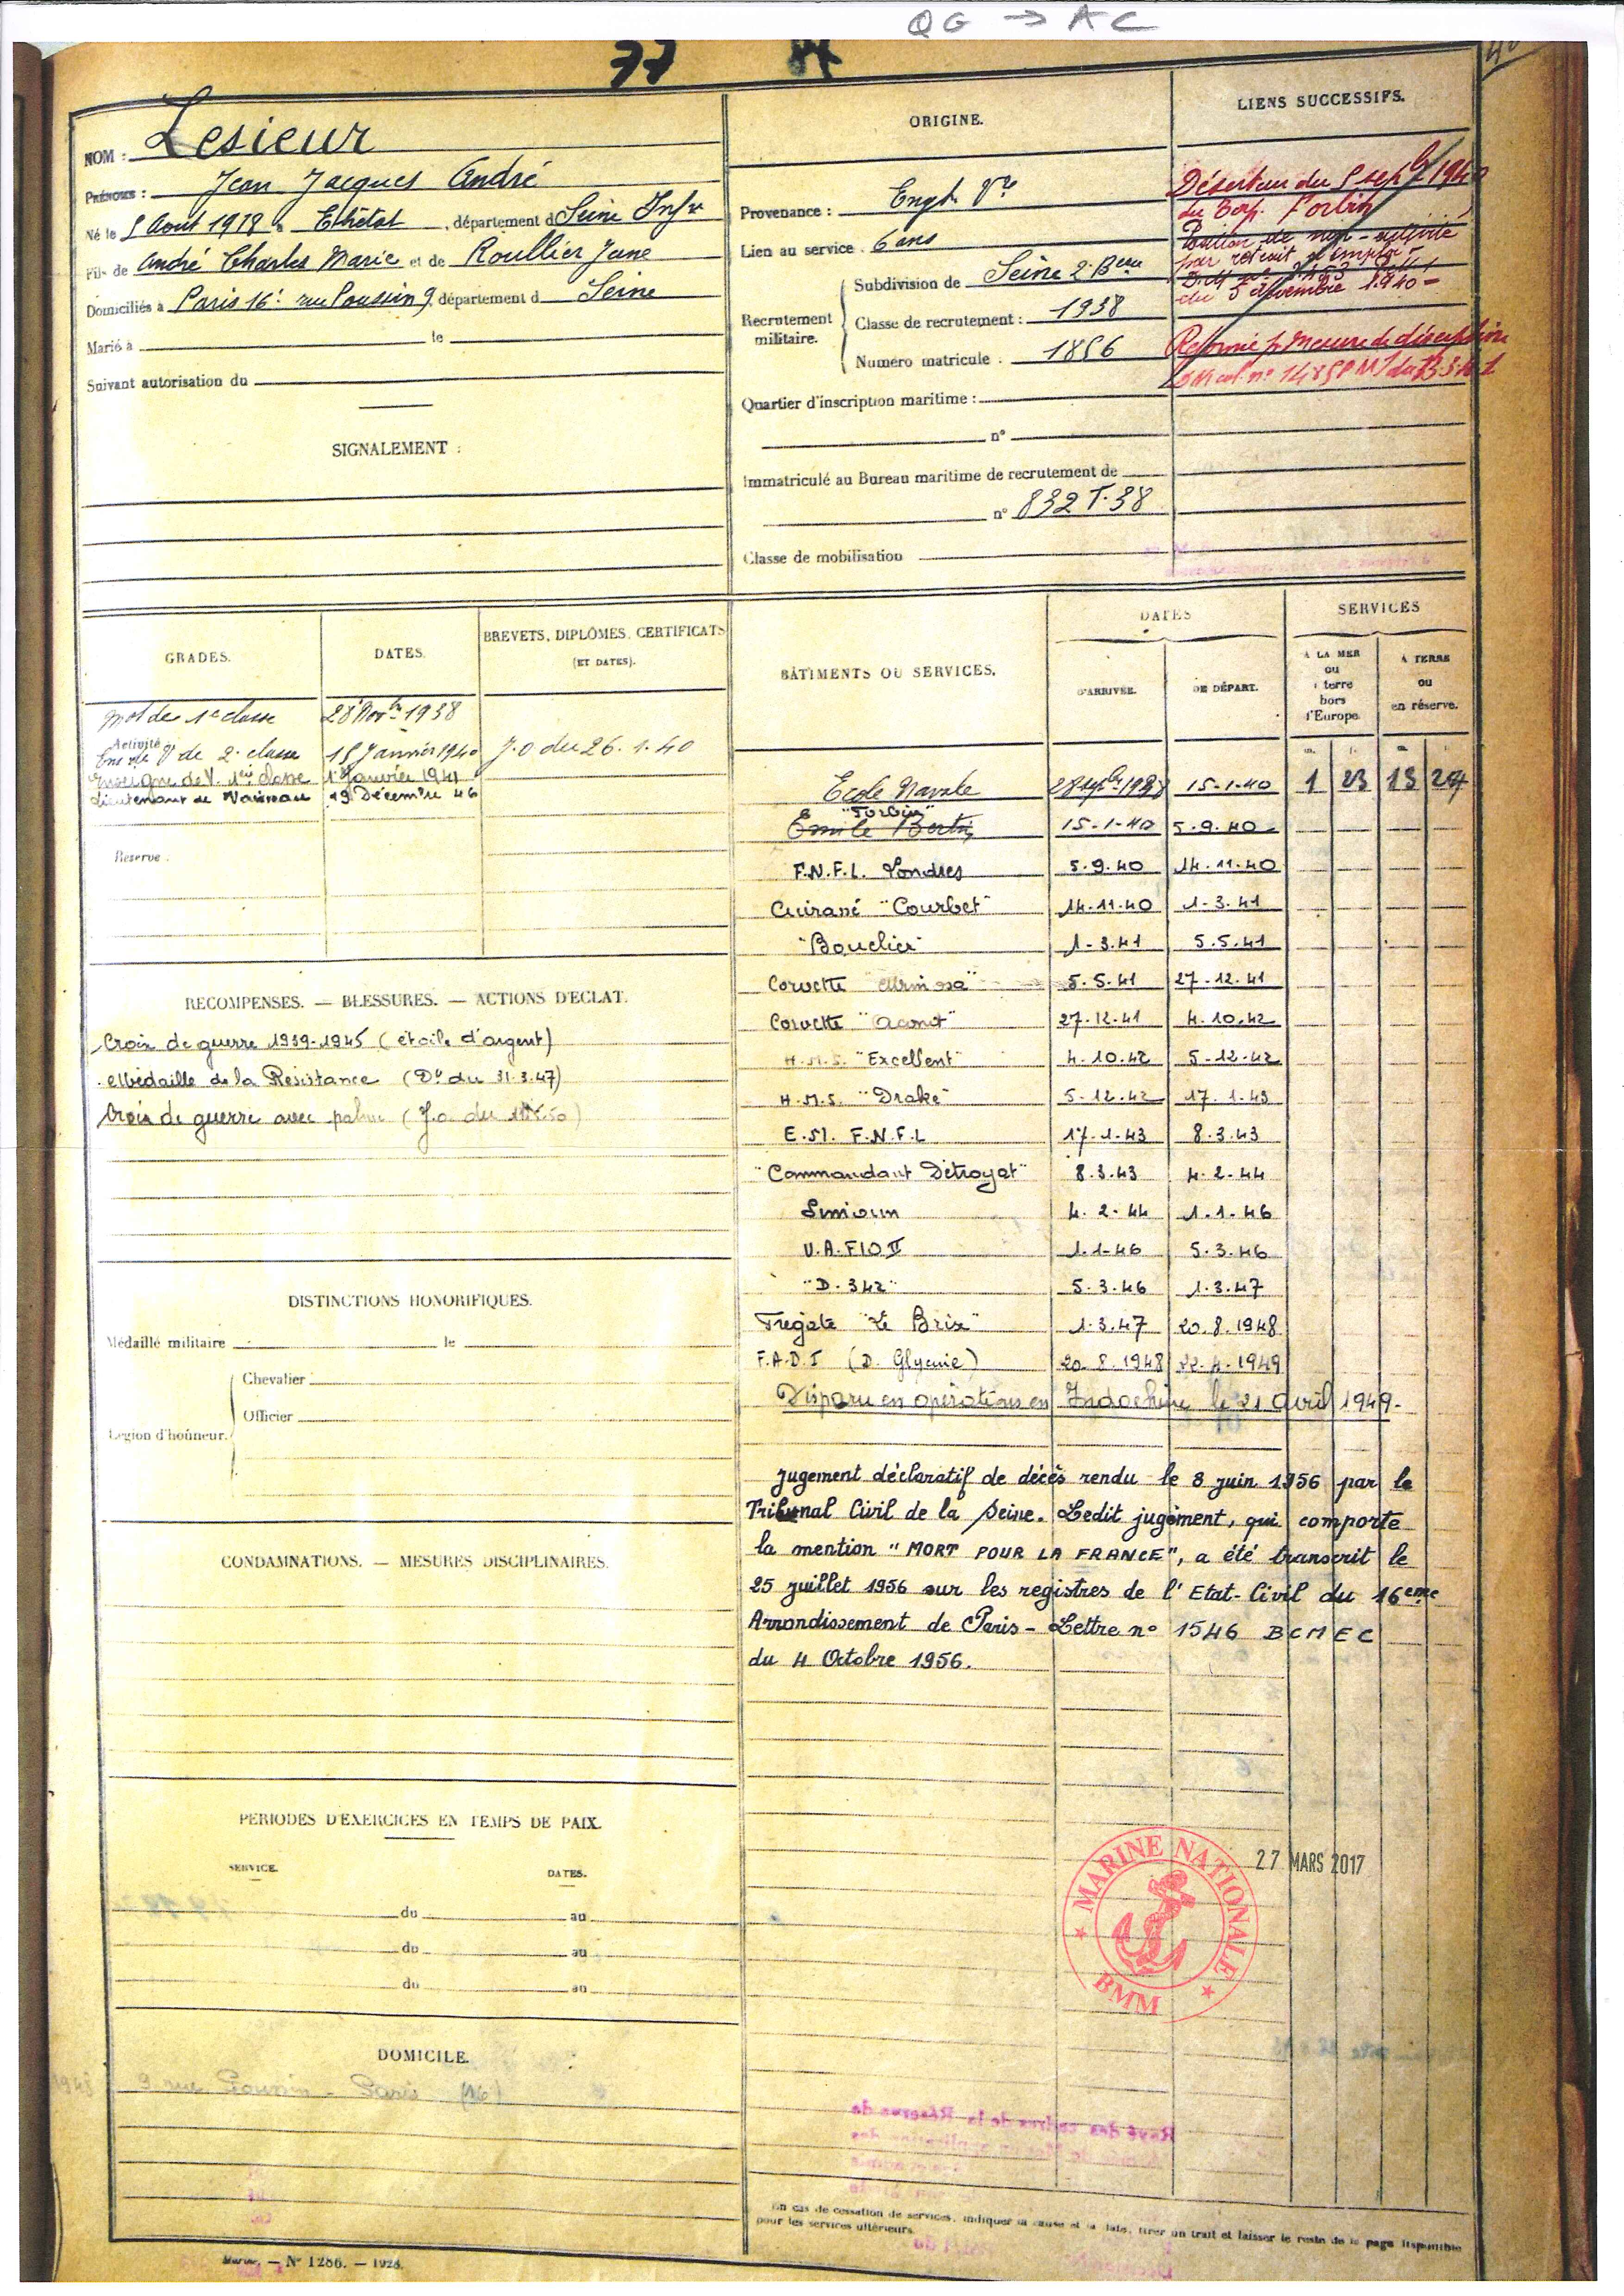 QG → AC
77
NOM : Lesieur
PRÉNOMS : Jean Jacques André
Né le 5 Août 1918 à Etretat, département d Seine Infre
Fils de André Charles Marie et de Roullier Jane
Domiciliés à Paris 16e rue Poussin 9, département d Seine
Marié à le
Suivant autorisation du
SIGNALEMENT :
ORIGINE.
Provenance : Engt Vre
Lien au service : 6 ans
Recrutement militaire.
Subdivision de Seine 2e Beau
Classe de recrutement : 1938
Numéro matricule : 1856
Quartier d'inscription maritime :
n°
Immatriculé au Bureau maritime de recrutement de
n° 832 T.38
Classe de mobilisation
LIENS SUCCESSIFS.
Déserteur du 5 sept 1940
du Torp. Forbin
Position de non-activité
par retrait d'emploi
du 5 novembre 1940 -
Réformé p. Mesure de discipline
GRADES.
DATES.
BREVETS, DIPLÔMES, CERTIFICATS
(ET DATES).
Mot de 1e classe 28 Novbre 1938
Activité :
Ene de V de 2e classe 15 Janvier 1940 J.O du 26.1.40
Enseigne de V. 1ère classe 1er Janvier 1941
Lieutenant de Vaisseau 19 Décembre 46
Réserve :
BÂTIMENTS OU SERVICES.
DATES
D'ARRIVÉE.
DE DÉPART.
SERVICES
A LA MER
ou
à terre
hors
d'Europe
A TERRE
ou
en réserve.
Ecole Navale 28 1938 15-1-40 1 23 13 24
"Forbin"
Emile Bertin 15-1-40 5.9.40
F.N.F.L. Londres 5.9.40 14.11.40
Cuirassé "Courbet" 14.11.40 1-3.41
"Bouclier" 1-3.41 5.5.41
Corvette "Mimosa" 5.5.41 27-12.41
Corvette "Aconit" 27.12.41 4.10.42
H.M.S. "Excellent" 4.10.42 5-12-42
H.M.S. "Drake" 5-12-42 17.1.43
E.M. F.N.F.L 17.1.43 8.3.43
"Commandant Détroyat" 8.3.43 4.2.44
Simoun 4.2-44 1.1-46
U.A.FIO II 1.1-46 5.3.46
"D.342" 5.3.46 1.3.47
Frégate "Le Brix" 1.3.47 20.8.1948
F.A.D.I (D. Glycine) 20.8.1948 22.4.1949
Disparu en opérations en Indochine le 21 avril 1949-
Jugement déclaratif de décès rendu le 8 juin 1956 par le
Tribunal Civil de la Seine. Ledit jugement, qui comporte
la mention "MORT POUR LA FRANCE", a été transcrit le
25 juillet 1956 sur les registres de l'Etat-Civil du 16ème
Arrondissement de Paris - Lettre n° 1546 BCMEC
du 4 Octobre 1956.
RÉCOMPENSES. — BLESSURES. — ACTIONS D'ÉCLAT.
Croix de guerre 1939-1945 (étoile d'argent)
Médaille de la Résistance (Dt du 31.3.47)
Croix de guerre avec palme (J.O. du
DISTINCTIONS HONORIFIQUES.
Médaillé militaire le
Légion d'honneur.
Chevalier
Officier
CONDAMNATIONS. — MESURES DISCIPLINAIRES.
PÉRIODES D'EXERCICES EN TEMPS DE PAIX.
SERVICE.
DATES.
du au
du au
du au
MARINE NATIONALE
BMM
27 MARS 2017
DOMICILE.
1948 9 rue Poussin - Paris (16)
En cas de cessation de services, indiquer la cause et la date, tirer un trait et laisser le reste de la page disponible
pour les services ultérieurs.
Marine. — N° 1286. — 1928.